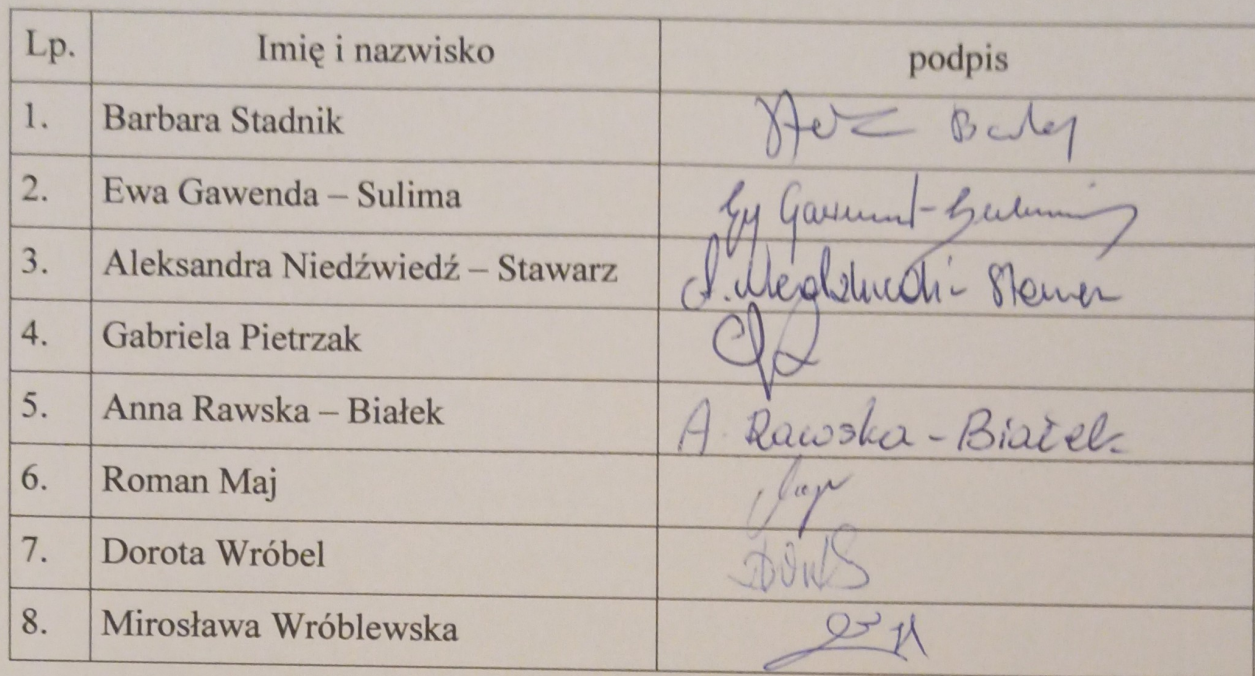 Lp. Imię i nazwisko podpis
1. Barbara Stadnik
2. Ewa Gawenda – Sulima
3. Aleksandra Niedźwiedź – Stawarz
4. Gabriela Pietrzak
5. Anna Rawska – Białek A. Rawska - Białek
6. Roman Maj
7. Dorota Wróbel
8. Mirosława Wróblewska